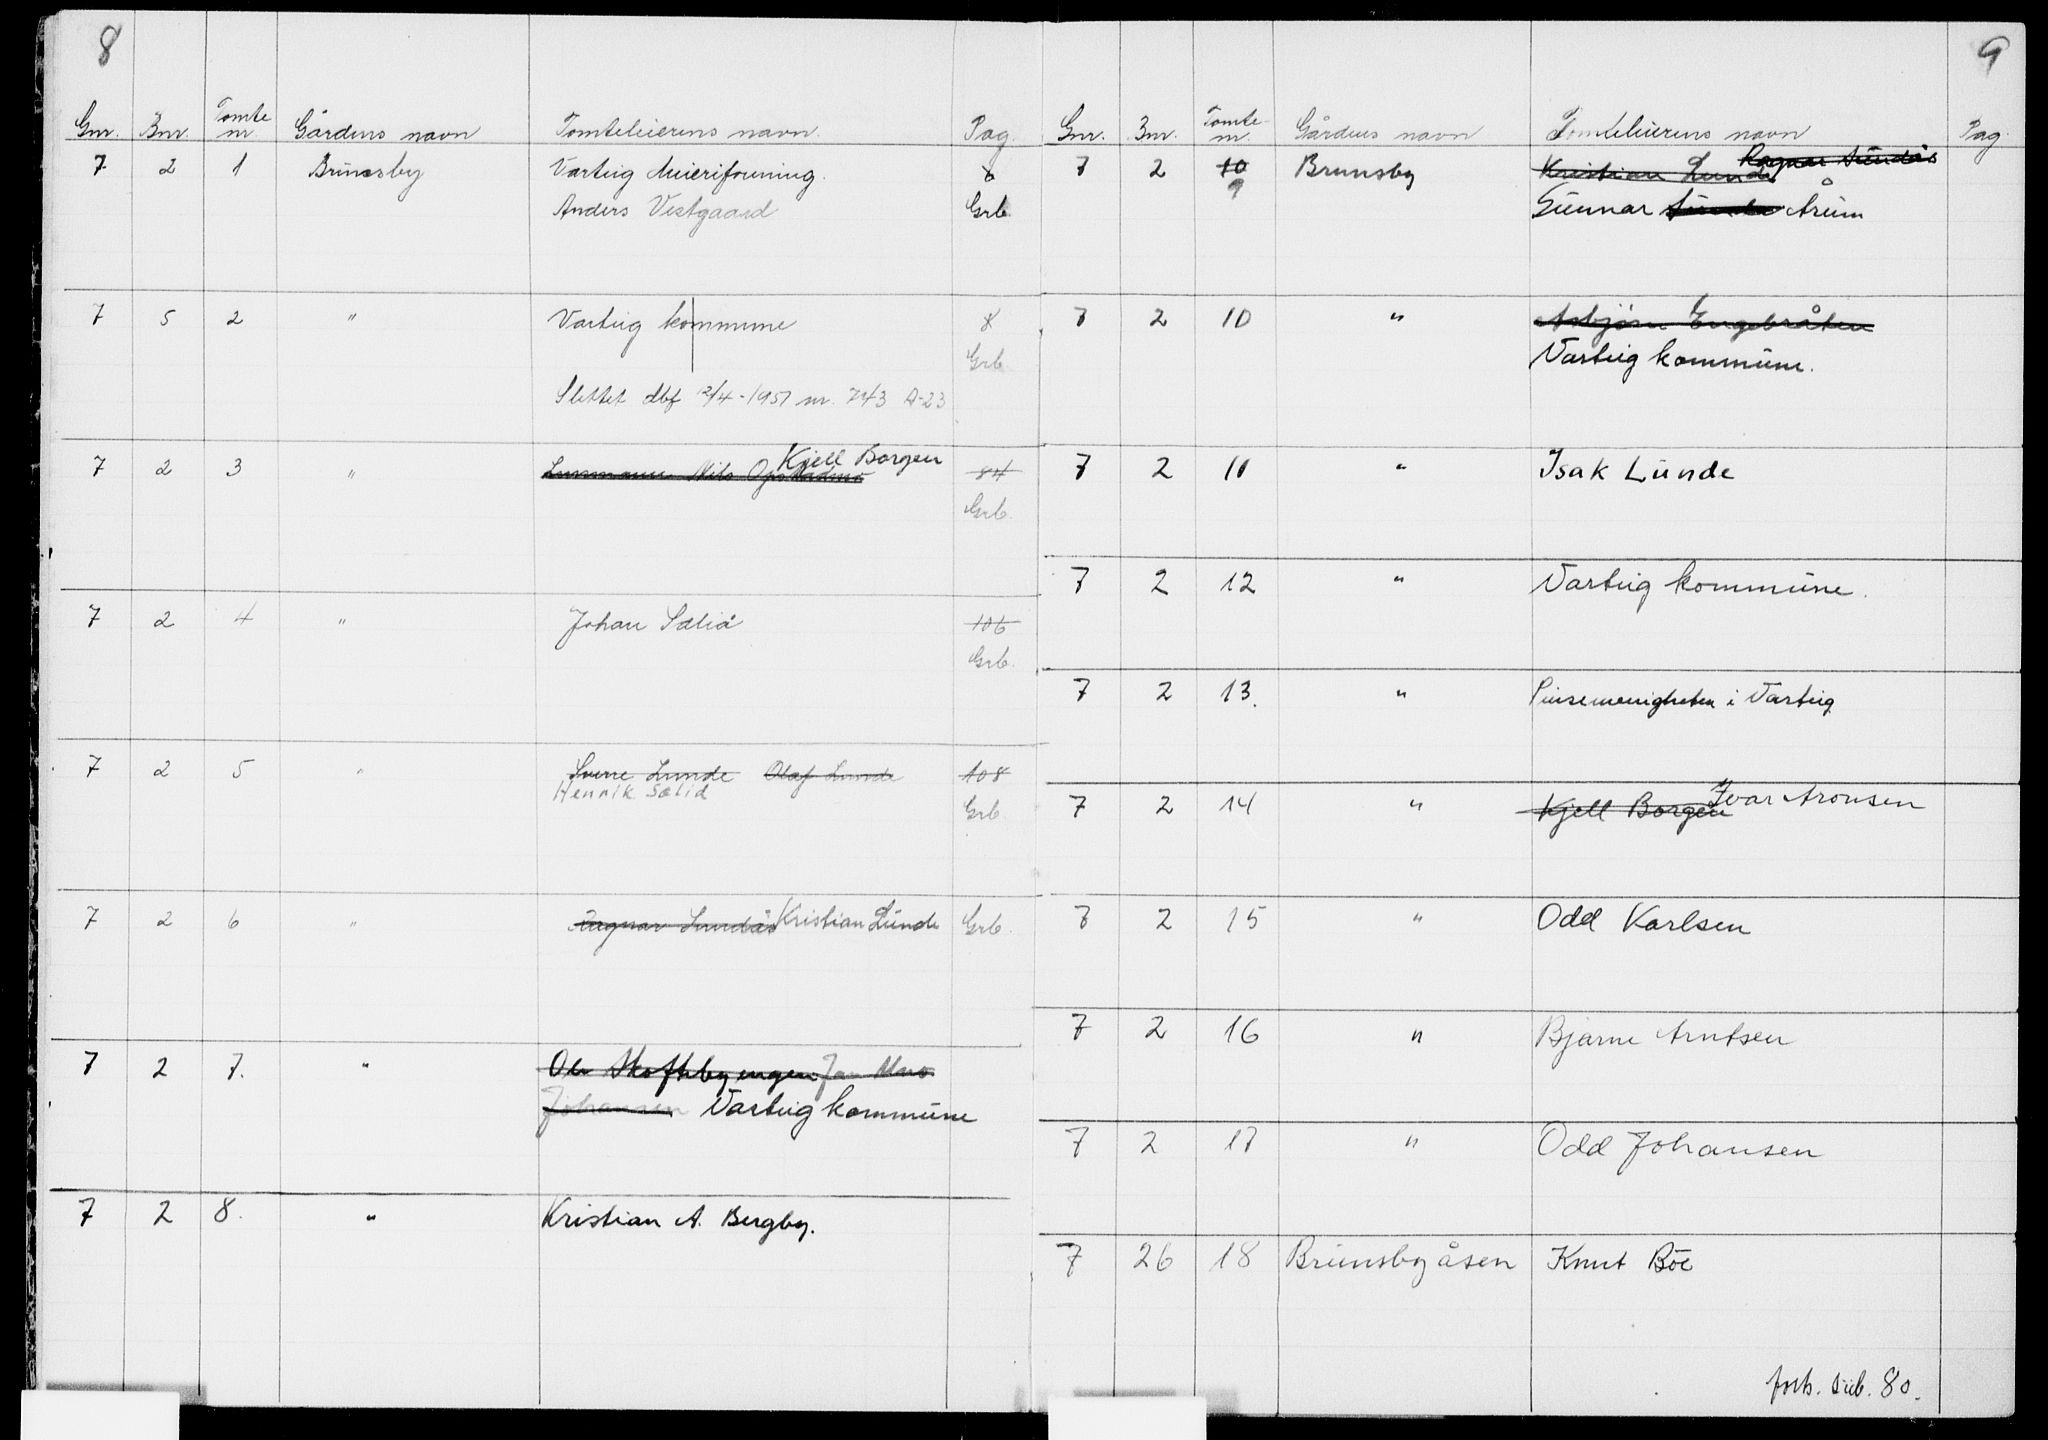 8
Gnr. Bnr. Tomte nr. Gårdens navn Tomteleierens navn. Pag.
7 2 1 Brunsby Varteig Meieriforening. 6
Anders Vestgaard Grb.
7 5 2 " Varteig kommune 8
Grb.
Slettet dbf 12/4-1951 nr. 743 A-23
7 2 3 " Lensmann Nils Opstadmo Kjell Borgen 84
Grb.
7 2 4 " Johan Sælid 106
Grb.
7 2 5 " Sverre Lunde Olaf Lunde 108
Henrik Sælid Grb.
7 2 6 " Ragnar Sundås Kristian Lunde Grb.
7 2 7. " Ole Skoftebyengen Jan
Johansen Varteig kommune
7 2 8. " Kristian A. Bergby.
9
Gnr. Bnr. Tomte nr. Gårdens navn Tomteleierens navn Pag.
7 2 10 Brunsby Kristian Lunde Ragnar Sundås
9 Gunnar Årum
7 2 10 " Asbjørn Engebråten
Varteig kommune.
7 2 11 " Isak Lunde
7 2 12 " Varteig kommune.
7 2 13. " Pinsemenigheten i Varteig
7 2 14 " Kjell Borgen Ivar Aronsen
7 2 15 " Odd Karlsen
7 2 16 " Bjarne Arntsen
7 2 17 " Odd Johansen
7 26 18 Brunsbyåsen Knut Böe
forts. side. 80.